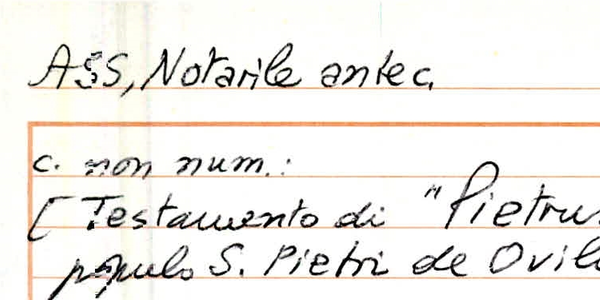 ASS, Notarile antec.
c. non num.:
[Testamento di "Pietrus
populo S. Pietri de Ovile